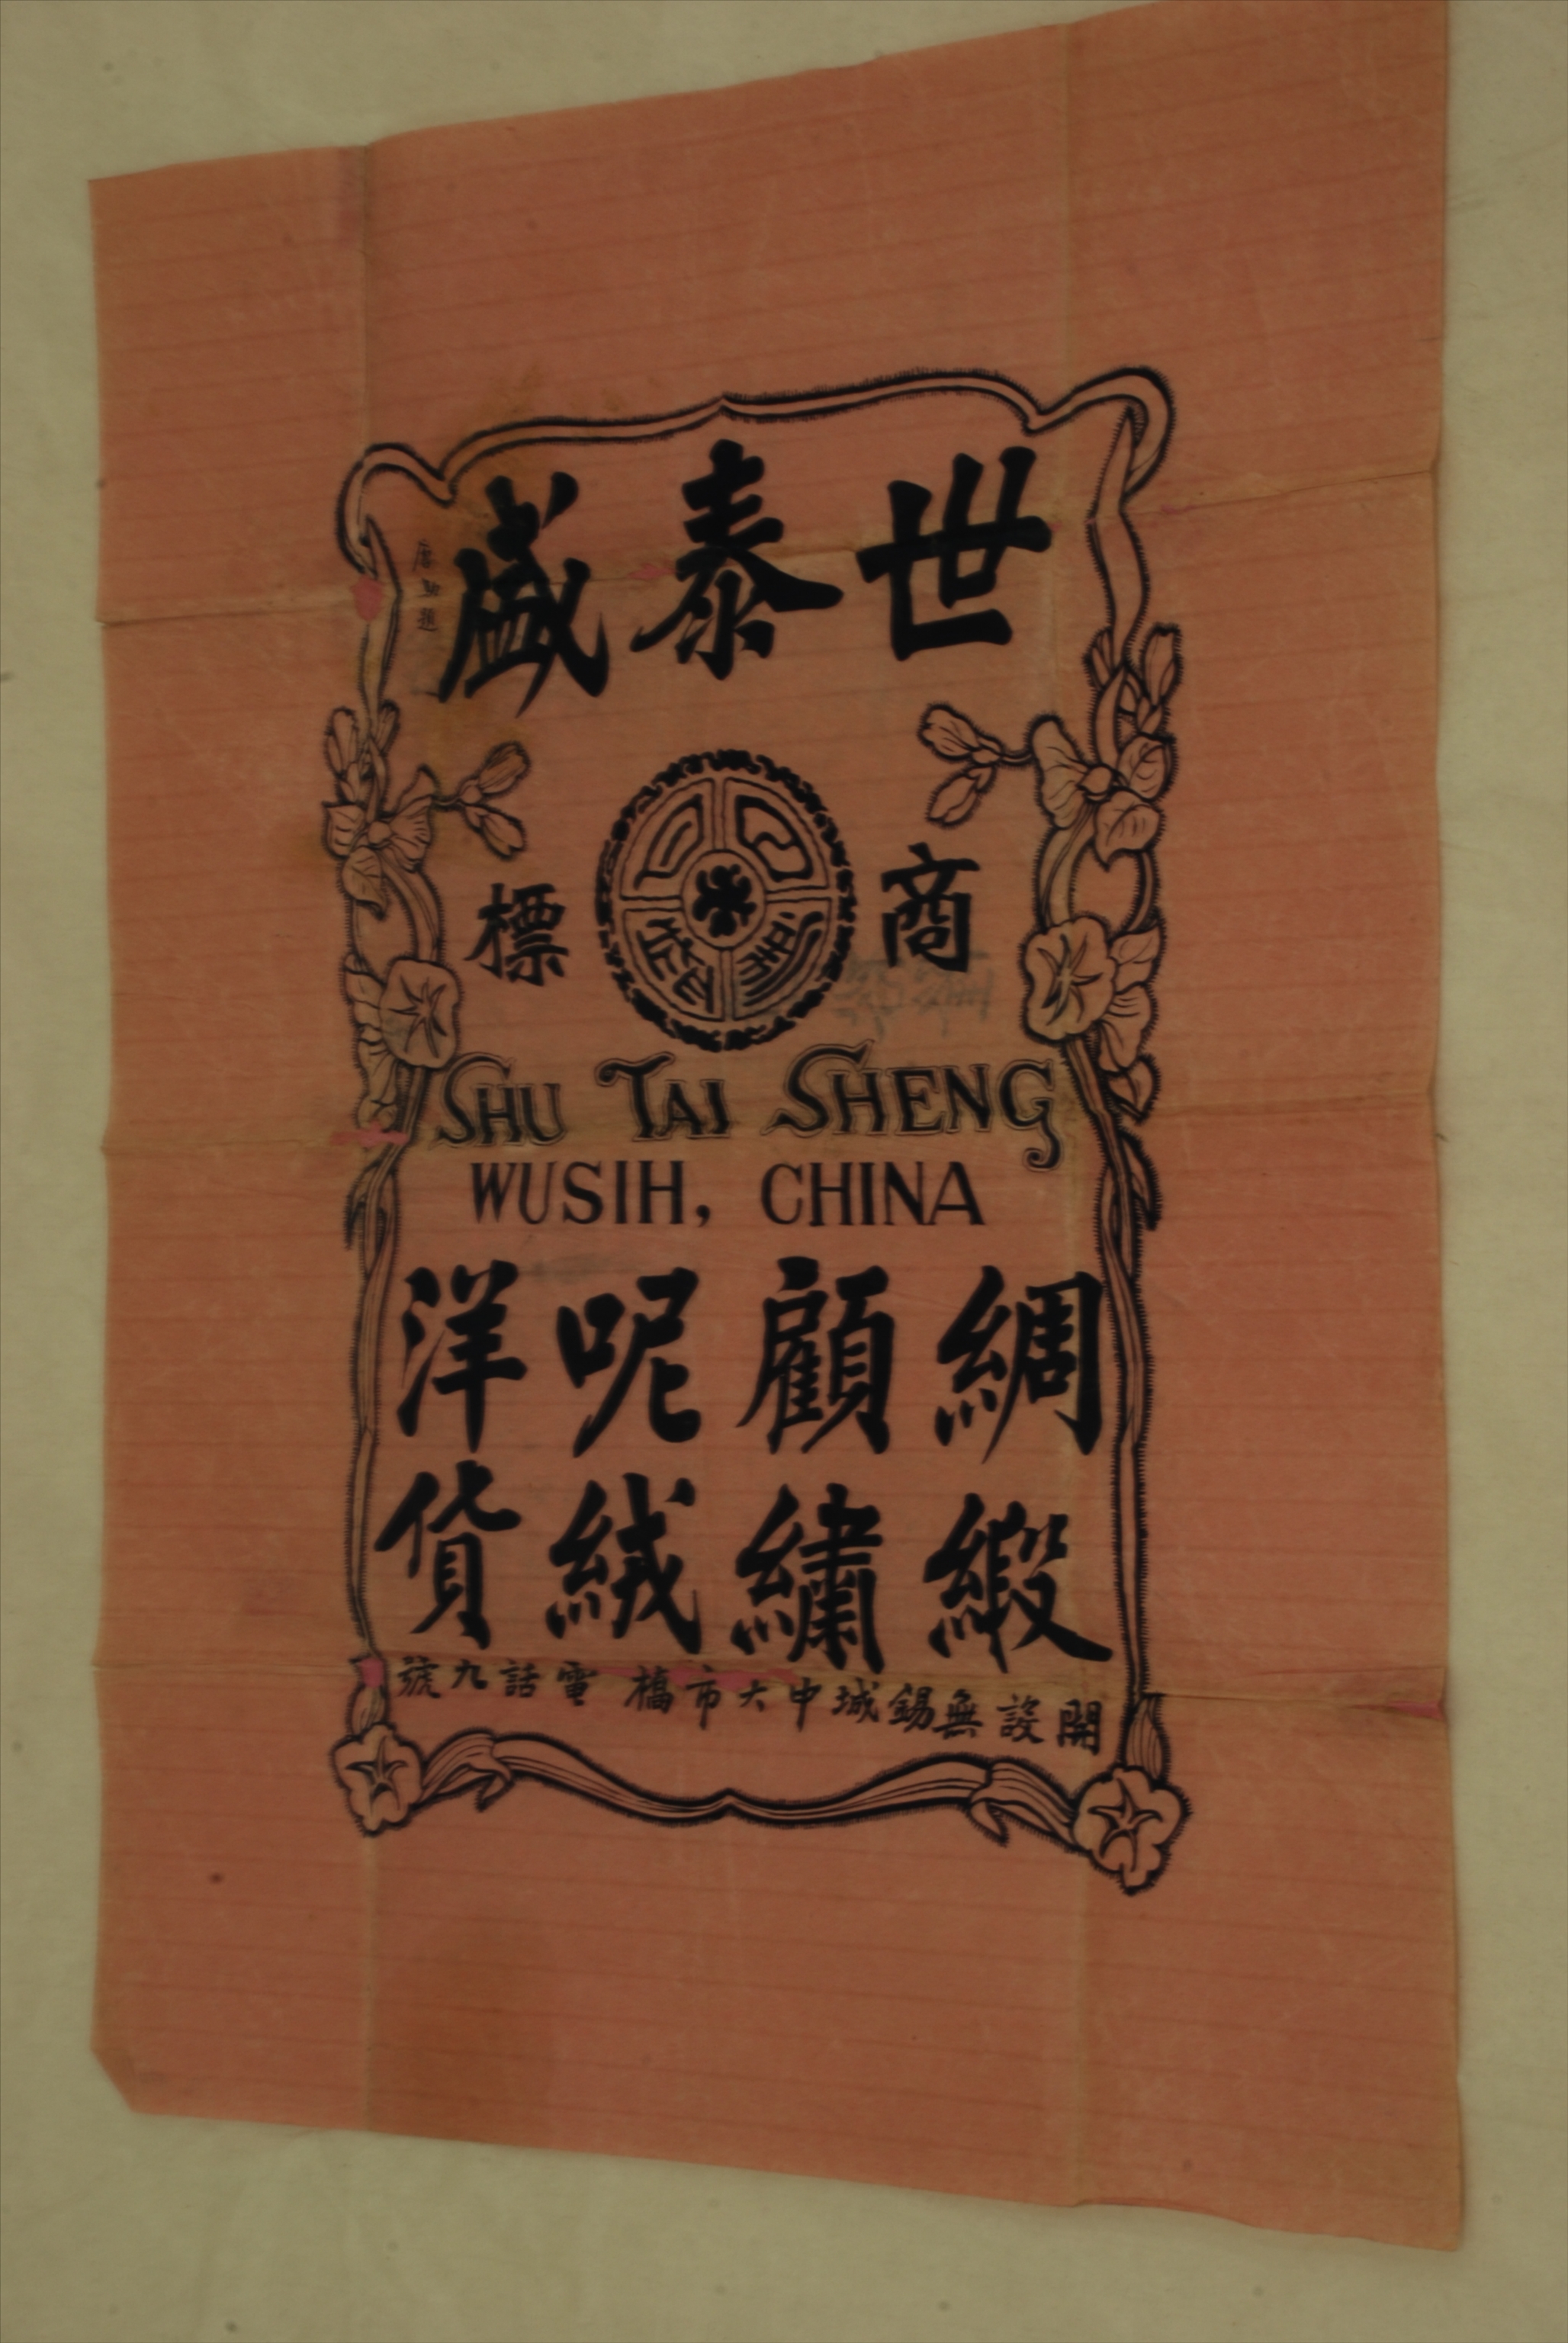 世泰盛
商標
SHU TAI SHENG
WUSIH, CHINA
綢緞
顧繡
呢絨
洋貨
開設無錫城中大市橋 電話九號